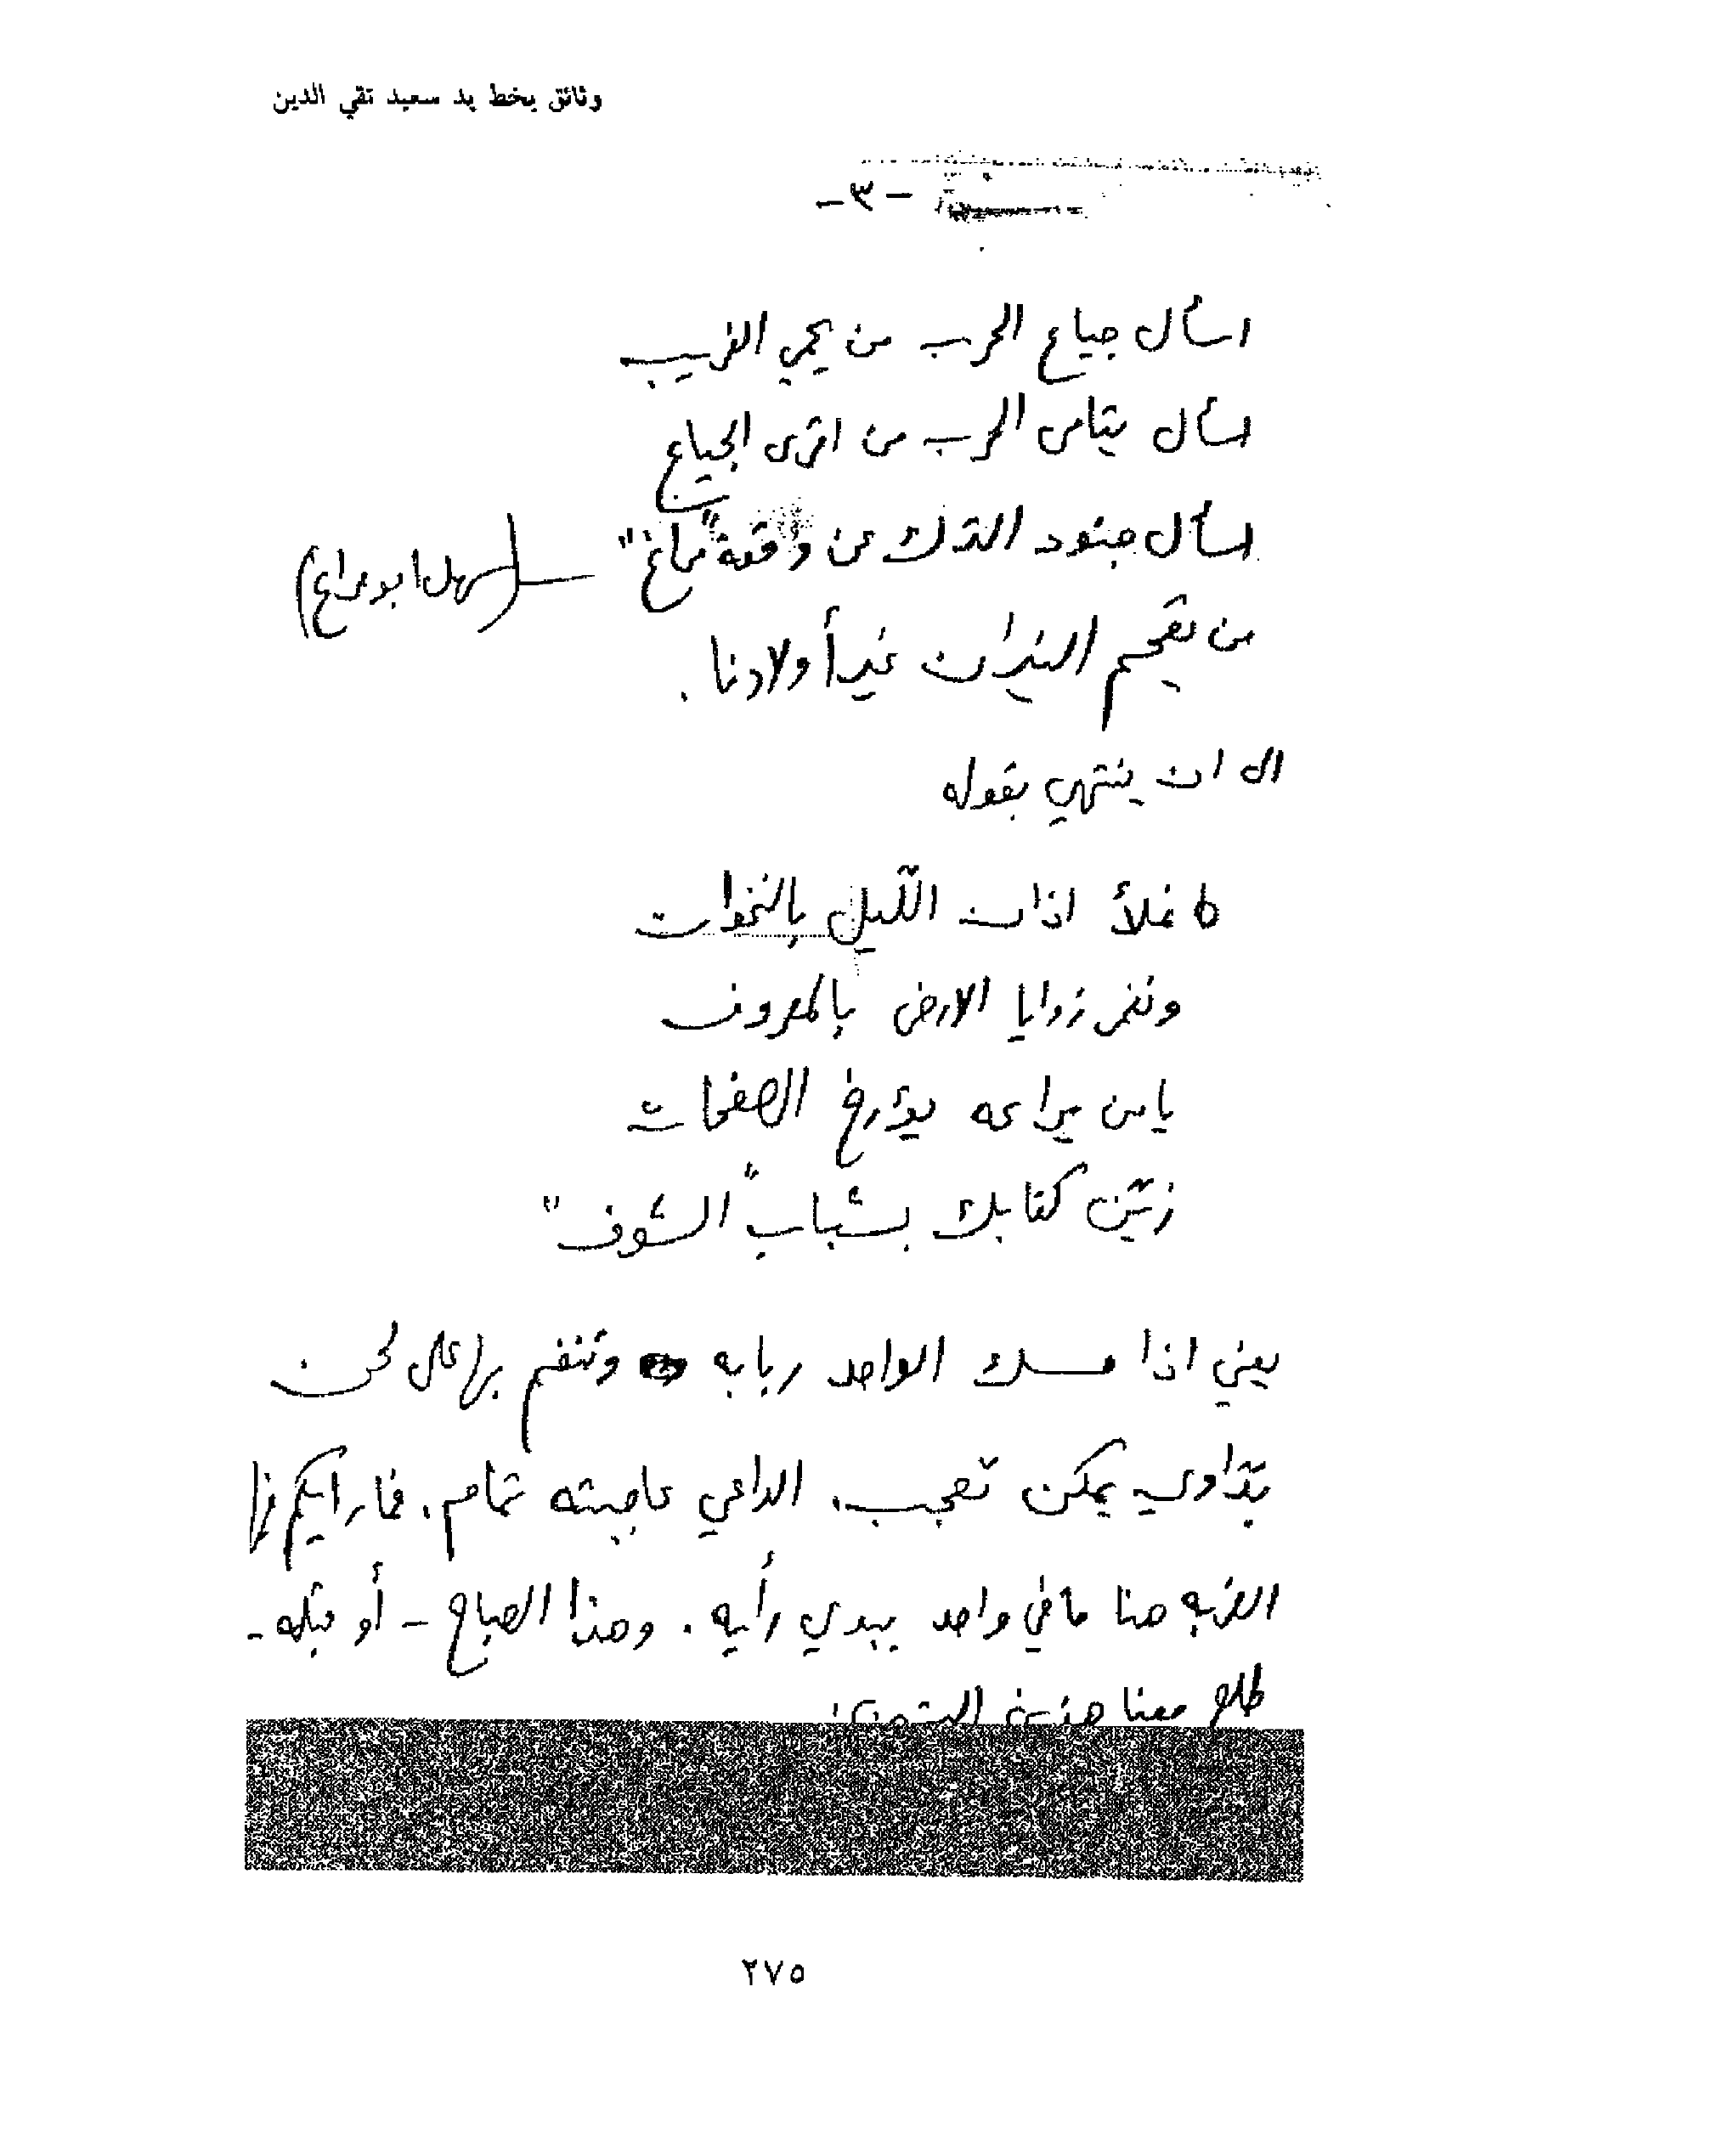 وثائق بخط يد سعيد تقي الدين
-٣-
اسأل جياع الحرب من يحمي الغريب
اسأل يتامى الحرب من اقرى الجياع
اسأل جنود الترك عن وقعة "مراغ" (سهل ابو مراغ)
من يقحم النيران غير أولادنا.
الى ان ينتهي بقوله
نملأ اذان الليل بالنخوات
ونغمر زوايا الارض بالمعروف
يا من يراعه يؤرخ الصفحات
زيّن كتابك بشباب "الشوف"
يعني اذا مسك الواحد ربابه وتنغم بها على لحن
بداوي يمكن تعجب. الداعي عاجبته تمام. فما رايكم فيها
القريه هنا ما في واحد يبدي رأيه. وهذا الصباح - أو قبله -
طلع معنا
٢٧٥